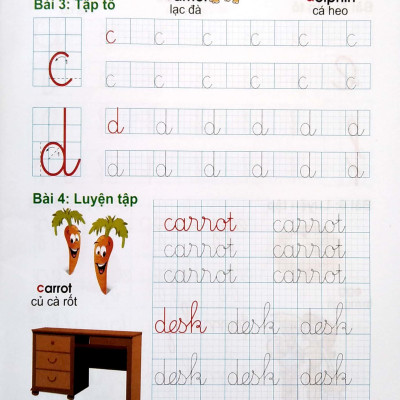 Bài 3: Tập tô
lạc đà
dolphin
cá heo
c c c c c c c
c c c c c c
d d d d d d d
d d d d d d
Bài 4: Luyện tập
carrot
củ cà rốt
carrot carrot
carrot carrot
carrot carrot
desk desk desk
desk desk desk